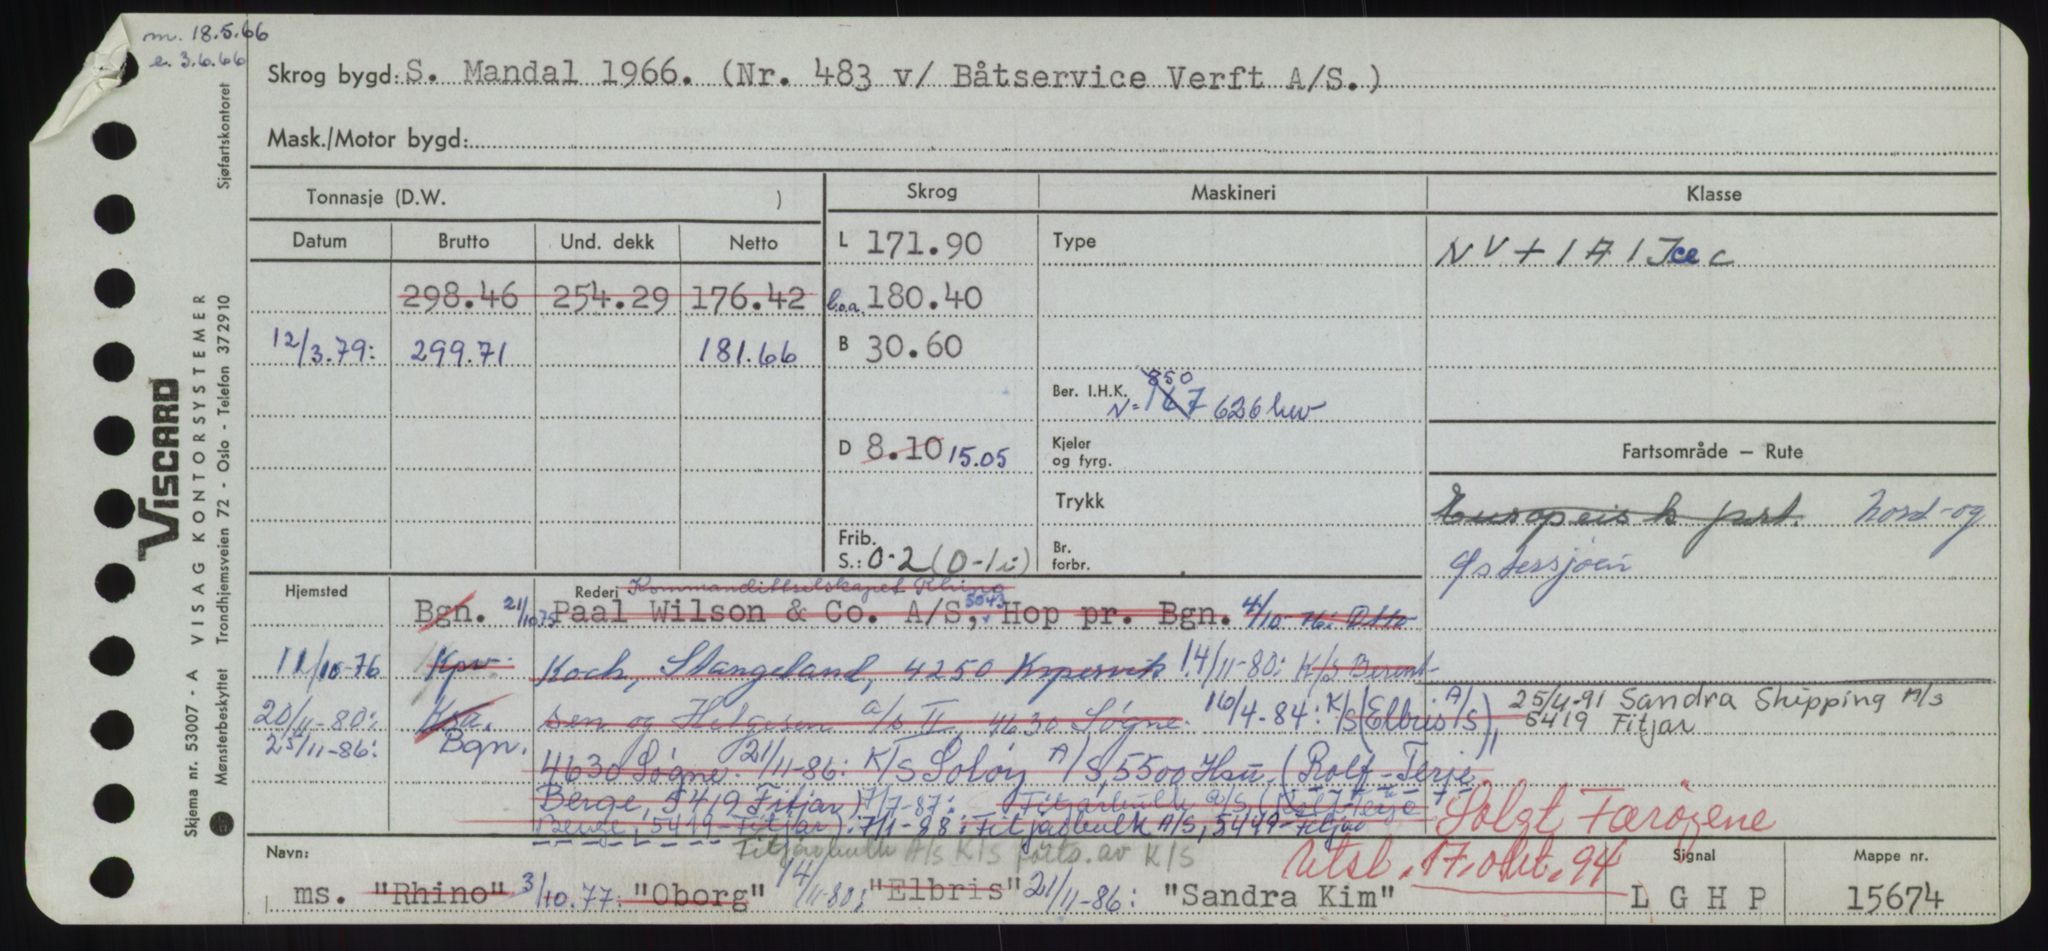 m. 18.5.66
e. 3.6.66
Skrog bygd: S. Mandal 1966. (Nr. 483 v/ Båtservice Verft A/S.)
Mask./Motor bygd:
Tonnasje (D.W. )
Skrog Maskineri Klasse
Datum Brutto Und. dekk Netto
L 171.90 Type NV + 1 A 1 Ice C
298.46 254.29 176.42 l.o.a. 180.40
12/3.79: 299.71 181.66 B 30.60
Ber. I.H.K. 850
N = 167 626 hw
D 8.10 15.05 Kjeler og fyrg. Fartsområde — Rute
Trykk Europeisk fart. Nord- og
Frib. S.: 0-2 (0-1 i) Br. forbr. Østersjøen
Hjemsted Rederi Kommandittselskapet Rhino
Bgn. 21/10.75 Paal Wilson & Co. A/S, 5043 Hop pr. Bgn. 4/10 Otto
11/10-76 Kpv. Koch, Stangeland, 4250 Kopervik 14/11-80: K/S Berent-
20/11-80: Ksa. sen og Helgesen a/s II, 4630 Søgne. 16/4-84: K/S (Elbris A/S),
25/4-91 Sandra Shipping A/S
5419 Fitjar
25/11-86: Bgn. 4630 Søgne. 21/11-86: K/S Soløy A/S, 5500 Hsu. (Rolf-Terje
Berge, 5419 Fitjar) 7/7-87: Fitjarbulk a/s (Rolf Terje
Berge, 5419 Fitjar). 7/1-88: Fitjarbulk A/S, 5449 Fitjar
Fitjarbulk A/S K/S forts. av K/S
Solgt Færøyene
Utsl. 17. okt. 94
Navn: Signal Mappe nr.
ms. "Rhino" 3/10.77: "Oborg" 14/11-80: "Elbris" 21/11-86: "Sandra Kim" L G H P 15674
Sjøfartskontoret
VISCARD
VISAG KONTORSYSTEMER
Trondhjemsveien 72 - Oslo - Telefon 37 29 10
Skjema nr. 53007 - A
Mønsterbeskyttet